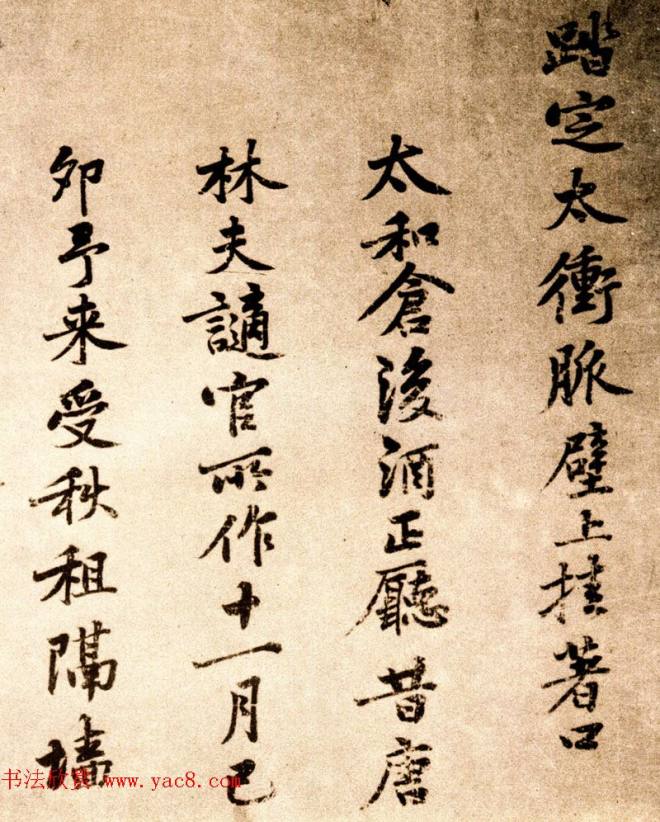 踏定太衝脈壁上挂著口
太和倉後酒正廳昔唐
林夫謫官所作十一月己
卯予来受秋租隔墻
书法欣赏 www.yac8.com